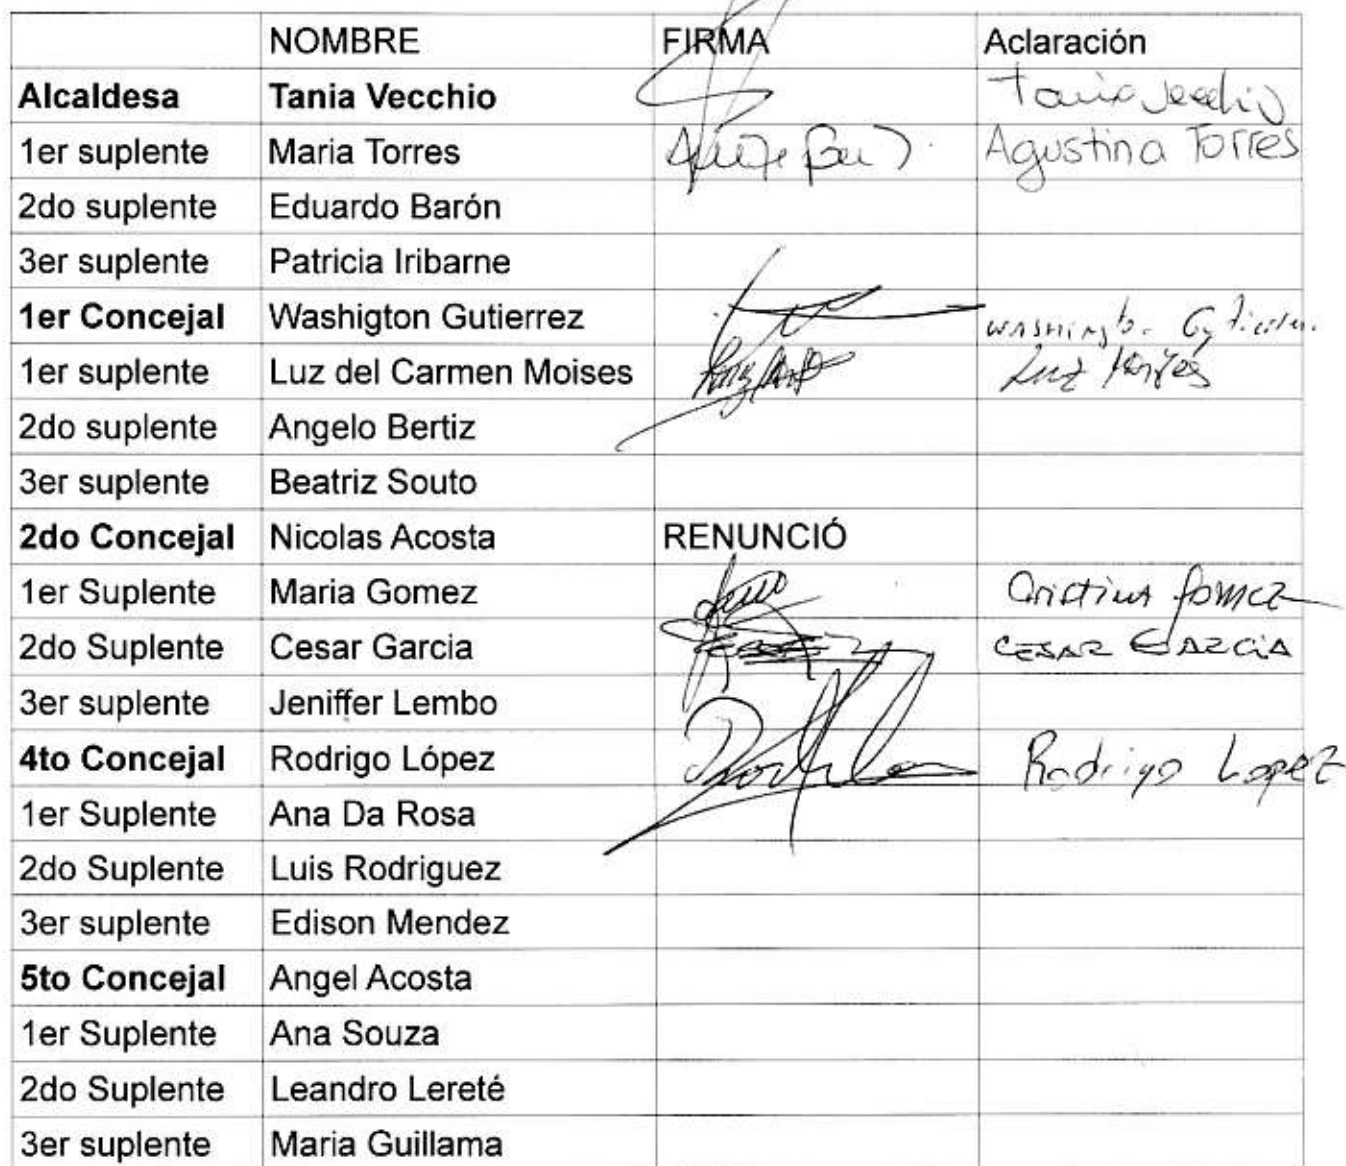 NOMBRE FIRMA Aclaración
Alcaldesa Tania Vecchio Tania Vecchio
1er suplente Maria Torres Agustina Torres
2do suplente Eduardo Barón
3er suplente Patricia Iribarne
1er Concejal Washigton Gutierrez Washington Gutierrez
1er suplente Luz del Carmen Moises Luz Moises
2do suplente Angelo Bertiz
3er suplente Beatriz Souto
2do Concejal Nicolas Acosta RENUNCIÓ
1er Suplente Maria Gomez Cristina Gomez
2do Suplente Cesar Garcia CESAR GARCIA
3er suplente Jeniffer Lembo
4to Concejal Rodrigo López Rodrigo Lopez
1er Suplente Ana Da Rosa
2do Suplente Luis Rodriguez
3er suplente Edison Mendez
5to Concejal Angel Acosta
1er Suplente Ana Souza
2do Suplente Leandro Lereté
3er suplente Maria Guillama